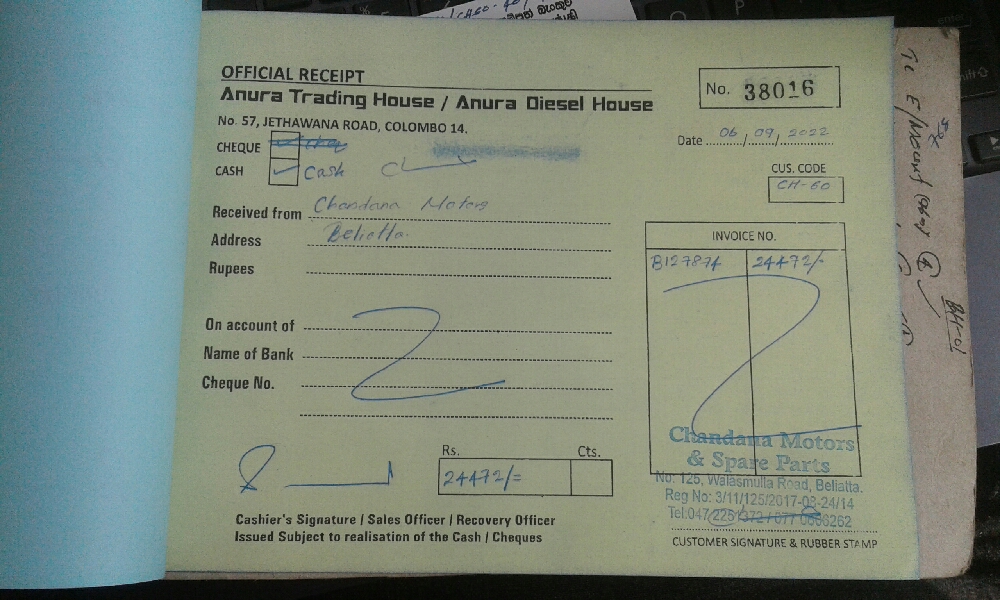 OFFICIAL RECEIPT
Anura Trading House / Anura Diesel House
No. 57, JETHAWANA ROAD, COLOMBO 14.
No. 38016
Date 06/09/2022
CHEQUE
CASH Cash
CUS. CODE
CH-60
Received from Chandana Motors
Address Beliatta.
Rupees
On account of
Name of Bank
Cheque No.
INVOICE NO.
B127874 24472/-
Rs. Cts.
24472/=
Cashier's Signature / Sales Officer / Recovery Officer
Issued Subject to realisation of the Cash / Cheques
Chandana Motors
& Spare Parts
No: 125, Walasmulla Road, Beliatta.
Reg No: 3/11/125/2017-03-24/14
Tel:047
CUSTOMER SIGNATURE & RUBBER STAMP
BH-01